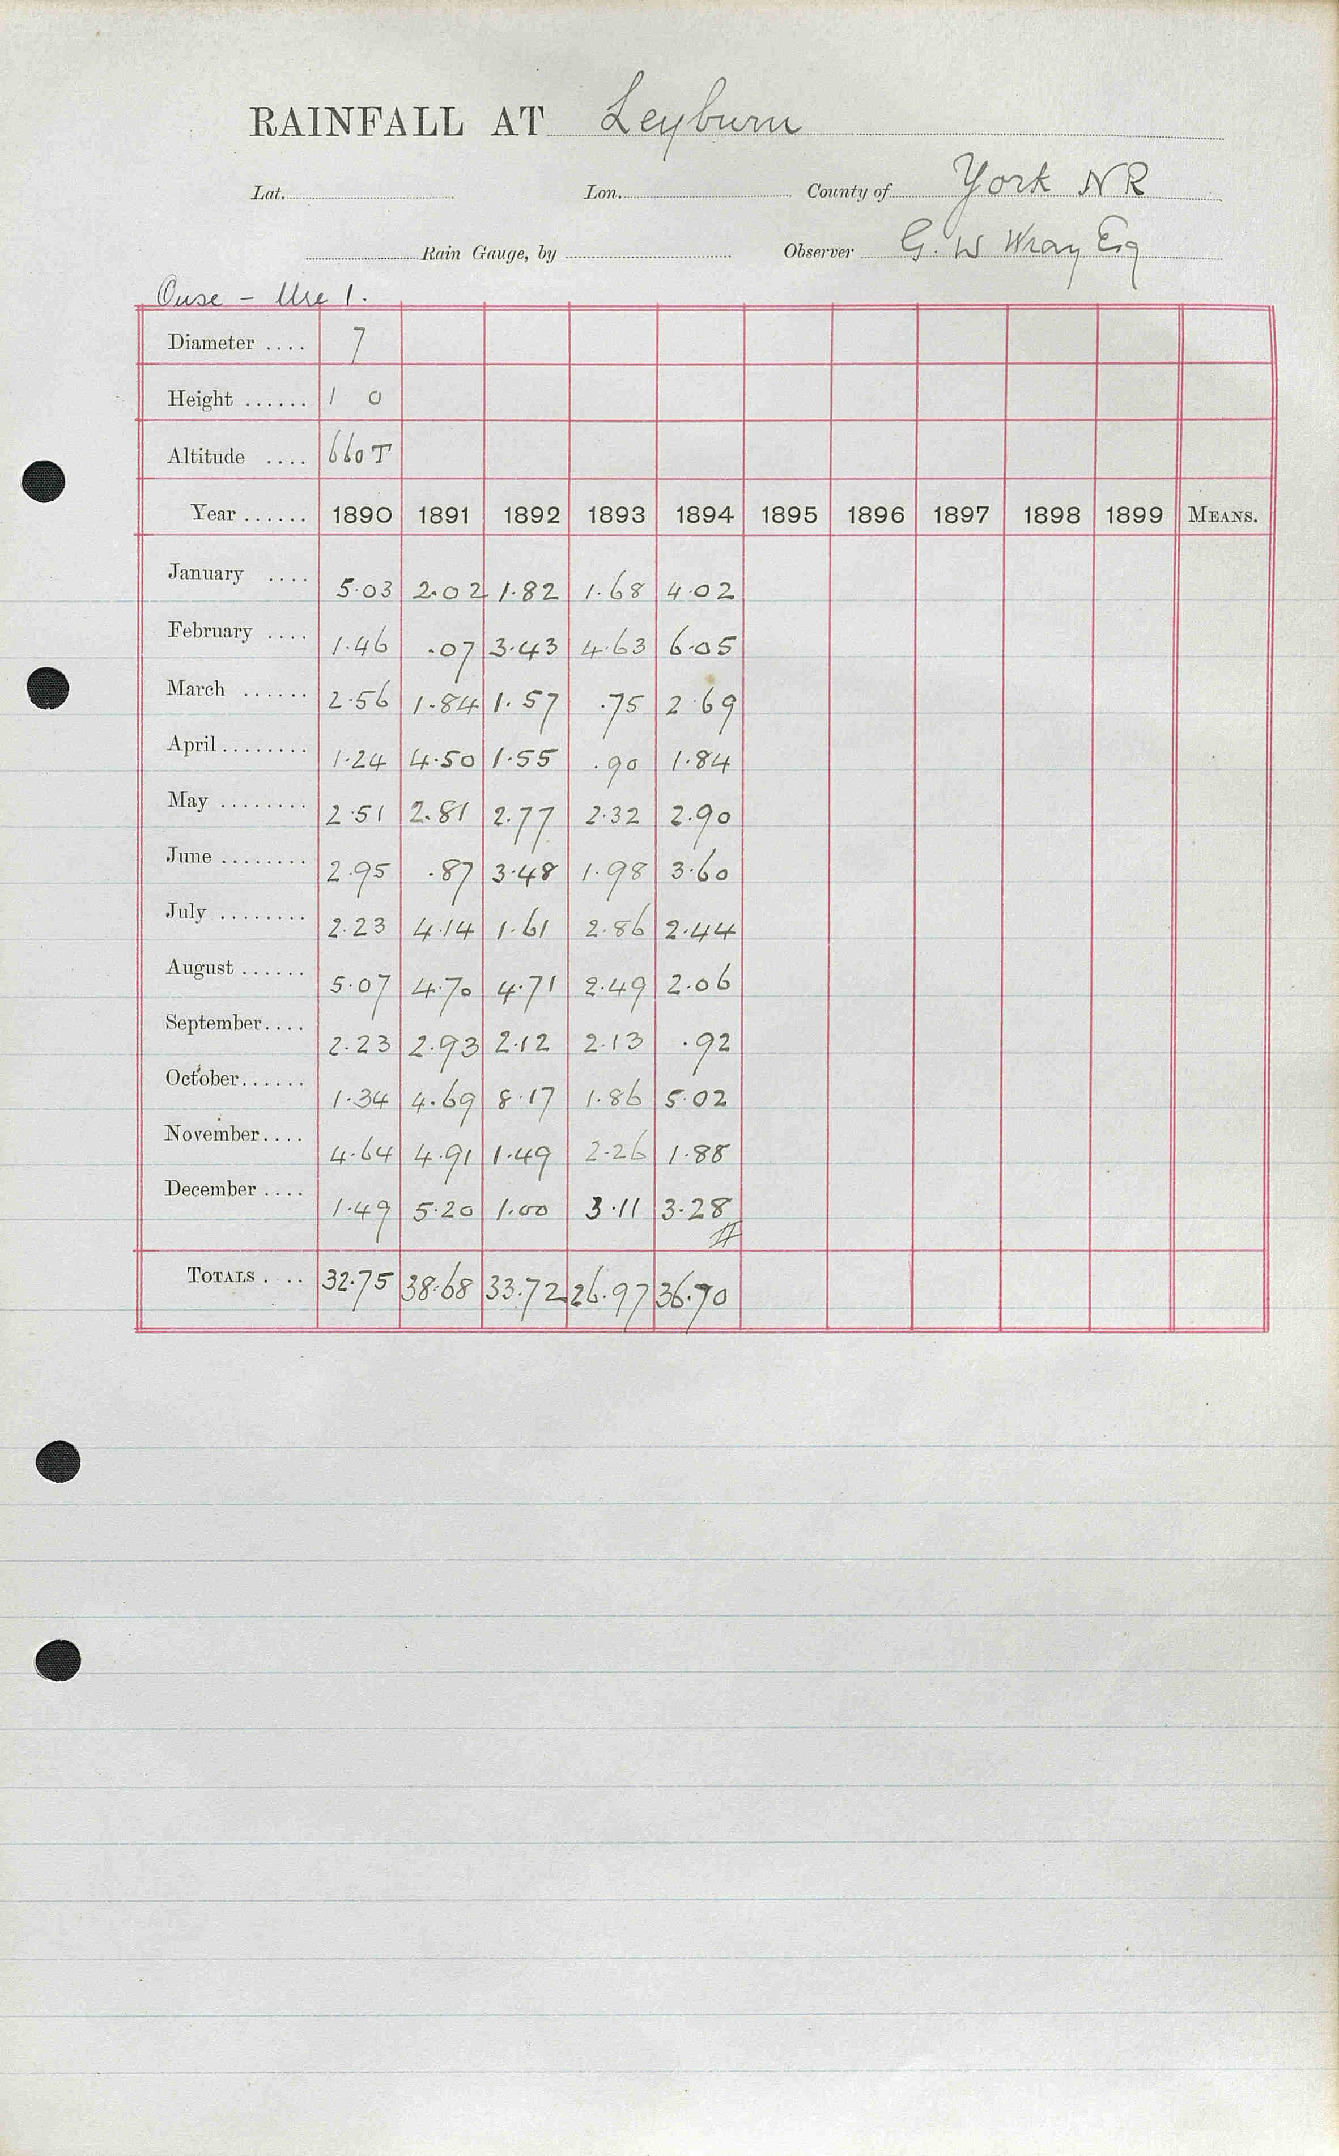 RAINFALL AT Leyburn
Lat. Lon. County of York NR
Rain Gauge, by Observer G. W Wray Esq
Ouse - Ure 1.
Diameter .... 7
Height ...... 1 0
Altitude .... 660 T
Year ...... 1890 1891 1892 1893 1894 1895 1896 1897 1898 1899 MEANS.
January .... 5.03 2.02 1.82 1.68 4.02
February .... 1.46 .07 3.43 4.63 6.05
March ...... 2.56 1.84 1.57 .75 2.69
April ........ 1.24 4.50 1.55 .90 1.84
May ........ 2.51 2.81 2.77 2.32 2.90
June ........ 2.95 .87 3.48 1.98 3.60
July ........ 2.23 4.14 1.61 2.86 2.44
August ...... 5.07 4.70 4.71 2.49 2.06
September.... 2.23 2.93 2.12 2.13 .92
October...... 1.34 4.69 8.17 1.86 5.02
November.... 4.64 4.91 1.49 2.26 1.88
December .... 1.49 5.20 1.00 3.11 3.28
TOTALS . .. 32.75 38.68 33.72 26.97 36.70